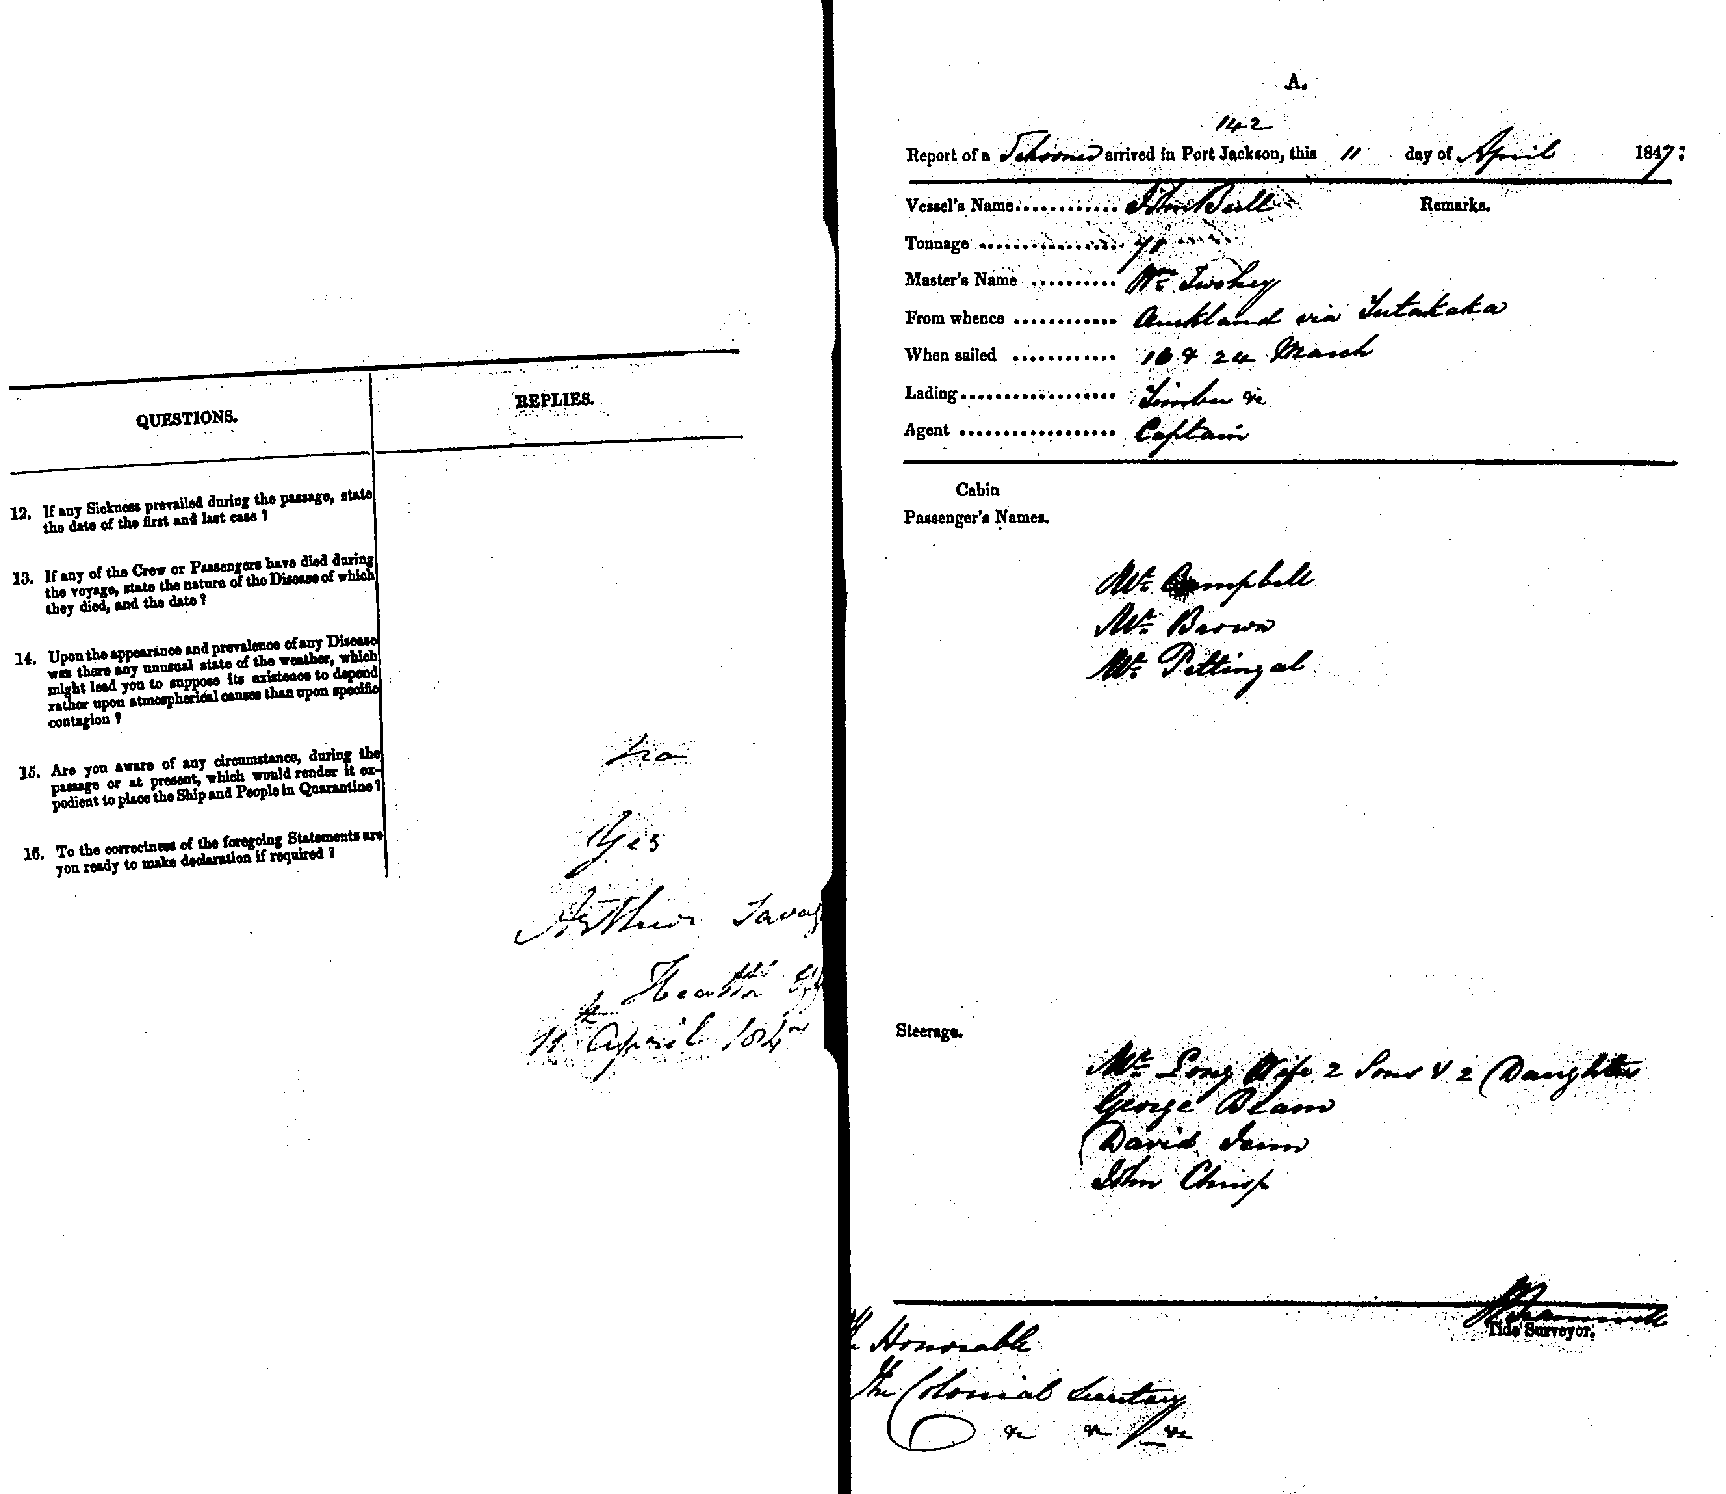 QUESTIONS.
REPLIES.
12. If any Sickness prevailed during the passage, state
the date of the first and last case ?
13. If any of the Crew or Passengers have died during
the voyage, state the nature of the Disease of which
they died, and the date ?
14. Upon the appearance and prevalence of any Disease
was there any unusual state of the weather, which
might lead you to suppose its existence to depend
rather upon atmospherical causes than upon specific
contagion ?
15. Are you aware of any circumstance, during the
passage or at present, which would render it ex-
pedient to place the Ship and People in Quarantine ?
no
16. To the correctness of the foregoing Statements are
you ready to make declaration if required ?
Yes
Arthur Savag
Health
11th April 184
A.
142
Report of a Schooner arrived in Port Jackson, this 11 day of April 1847:
Vessel's Name............ John Bull
Remarks.
Tonnage .................. 71
Master's Name .......... Wm Twohey
From whence ............ Auckland via Tutakaka
When sailed ............ 16 & 24 March
Lading.................. Timber &c
Agent .................. Captain
Cabin
Passenger's Names.
Mr. Campbell
Mr. Brown
Mr. Pettingal
Steerage.
Mr. Long Wife 2 Sons & 2 Daughters
George Beam
David
John Chrisp
Tide Surveyor.
Honorable
The Colonial Secretary
&c &c &c